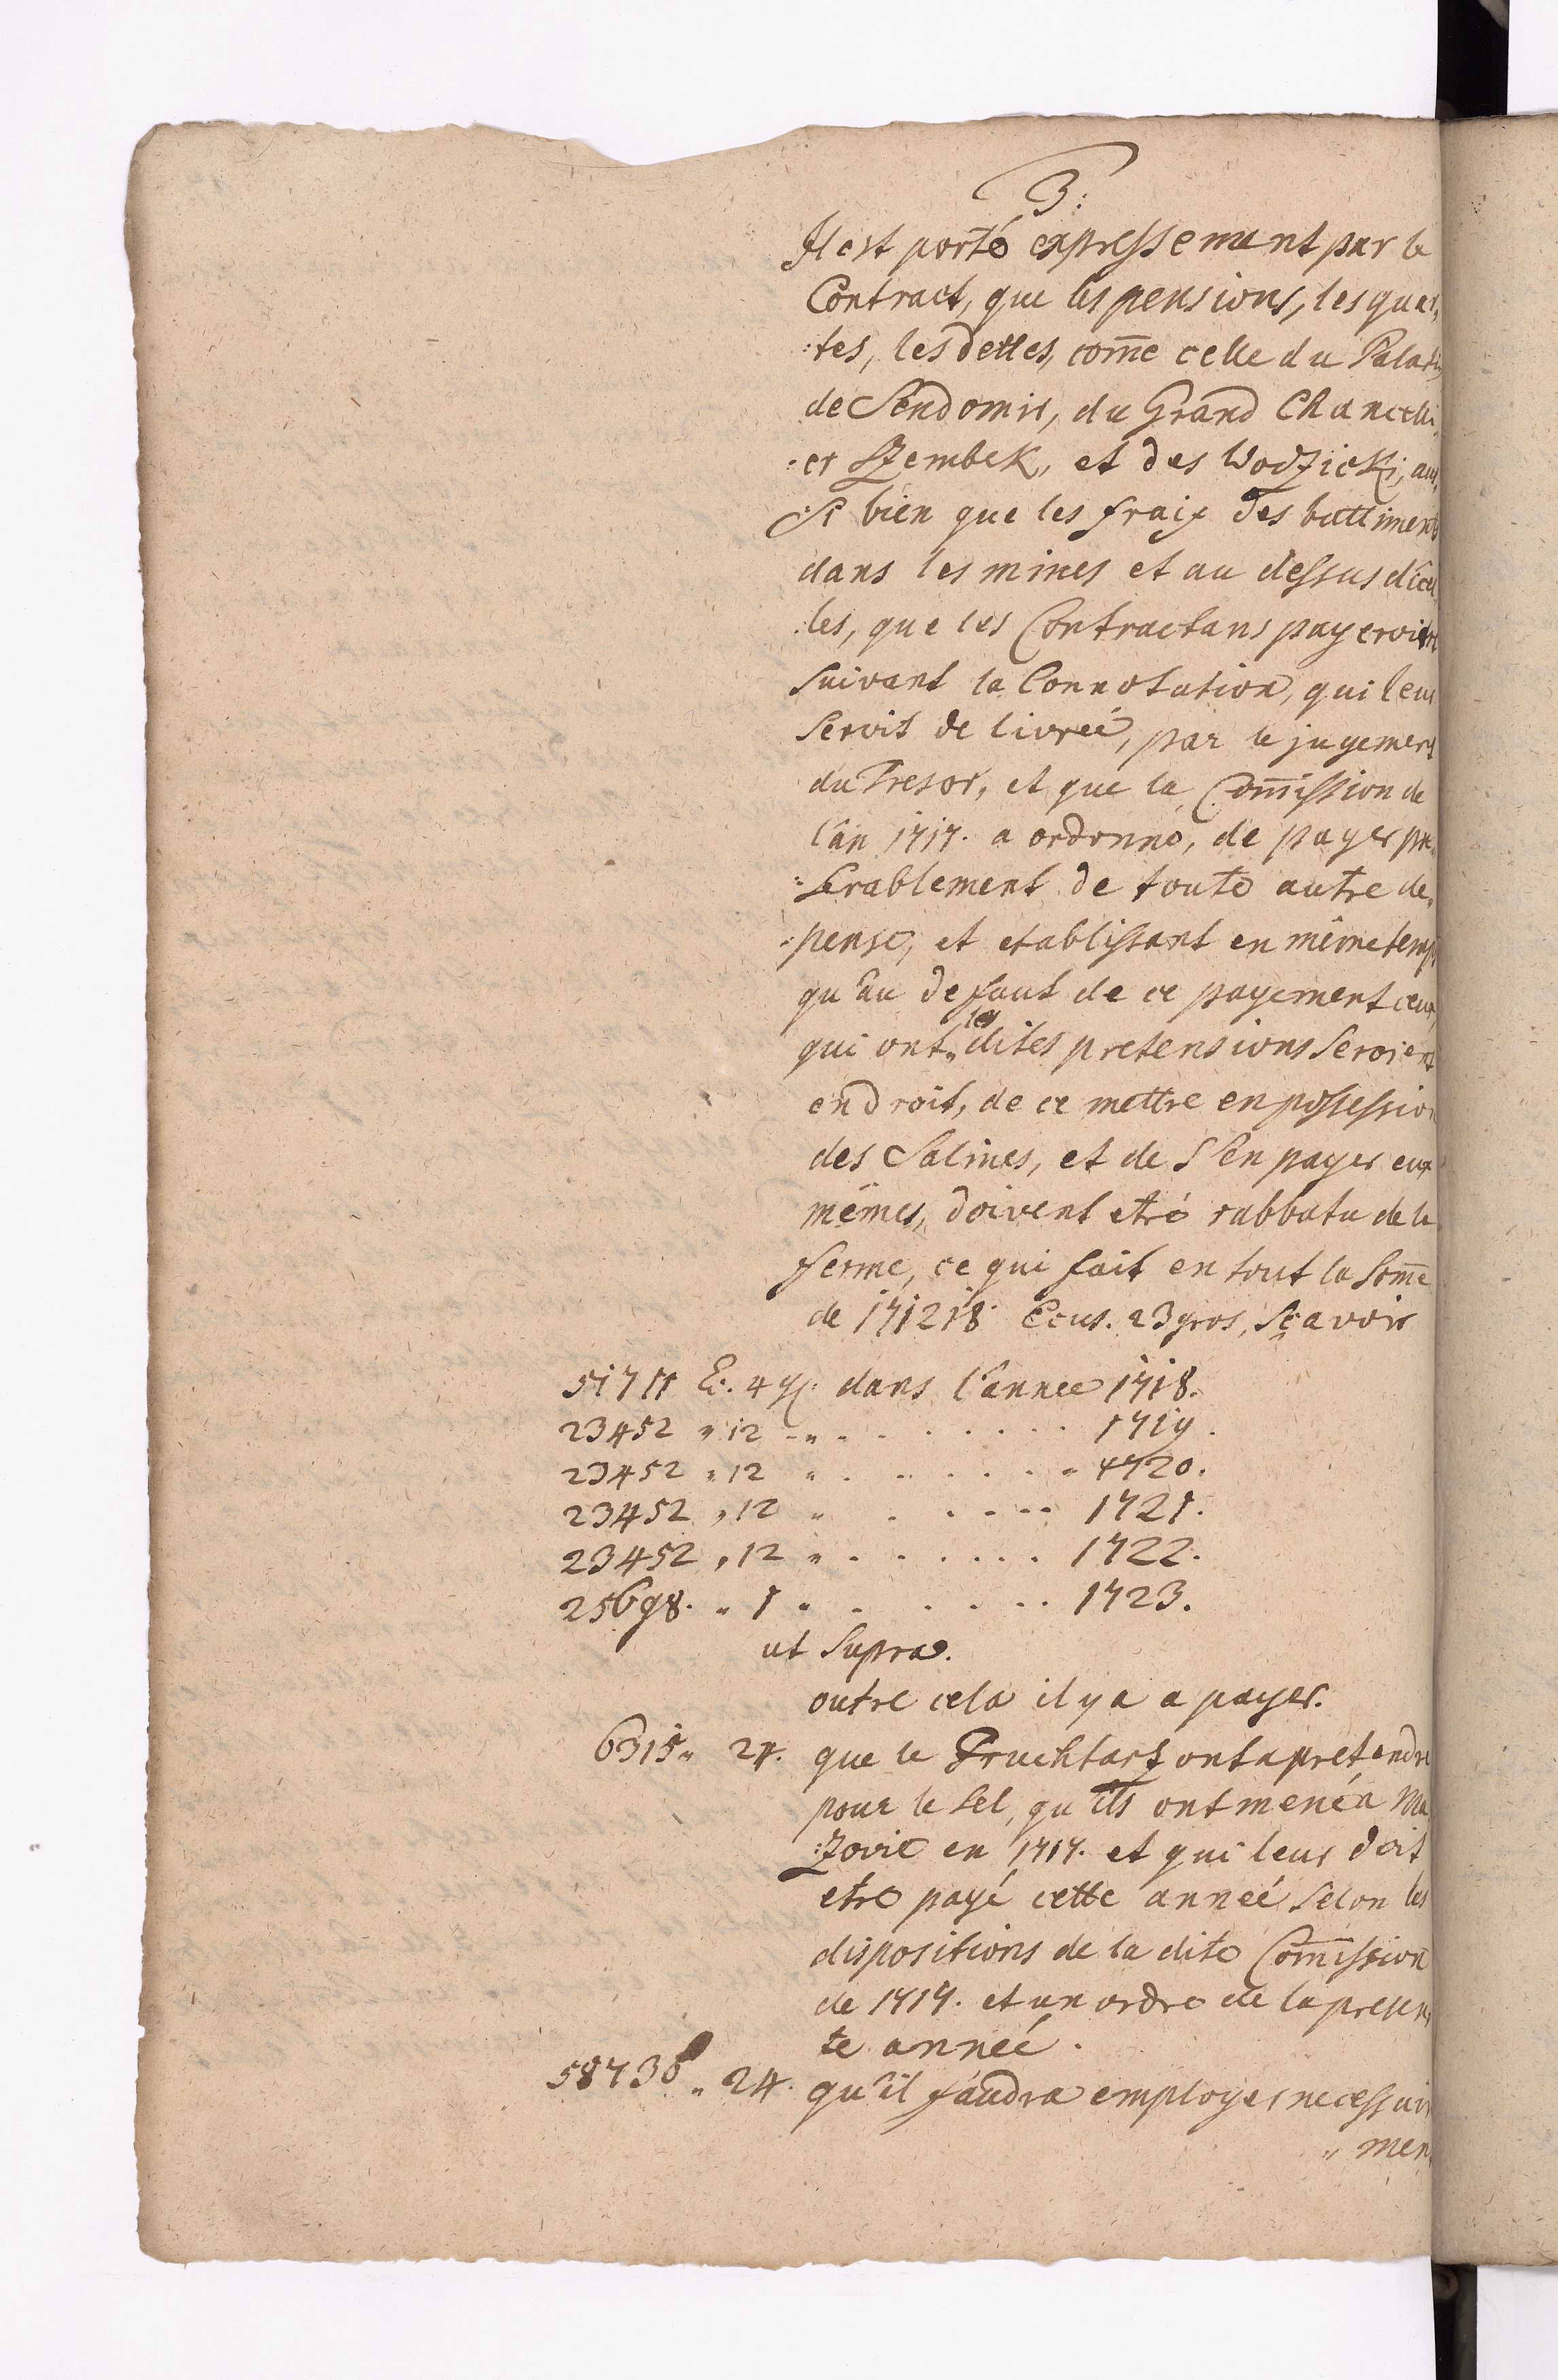 3:
Il est porté expressement par le
Contract, que les pensions, les quar,
:tes, les dettes, com̄e celle du Palatin
de Sendomir, du Grand Chancelli,
:er Szembek, et des Wodzicki, au,
:si bien que les fraix des battiments
dans les mines et au dessus d'icel
:les, que les Contractans payeroient
suivant la Connotation, qui leur
seroit de livreé, par le jugement
du Tresor, et que la Com̄ission de
l'an 1717. a ordonné, de payer pre,
:ferablement de toute autre de,
:pense, et etablissant en même temps
qu'au defaut de ce payement ceux,
qui ont les dites pretensions seroient
en droit, de ce mettre en possession
des Salines, et de s'en payer eux
mêmes, doivent etré rabbatu de la
ferme, ce qui fait en tout la som̄e
de 171218. Ecus. 23 gros, sçavoir
51711 E. 4 g. dans l'année 1718.
23452 „ 12 „ . . . . . . . . 1719.
23452 „ 12 „ . . . . . . . 1720.
23452 „ 12 „ . . . . . 1721.
23452 „ 12 „ . . . . . . 1722.
25698. „ 1 „ . . . . . 1723.
ut Supra.
outre cela il y a a payer.
6315„ 24. que le Fruchtarz ont a pretendre
pour le sel, qu'ils ont mené a Ma
:zovie en 1717. et qui leur doit
etre payé cette anneé selon les
dispositions de la dite Com̄ission
de 1717. et un ordre de la presen,
te anneé.
58736 „ 24. qu'il faudra employer necessair
„ ment